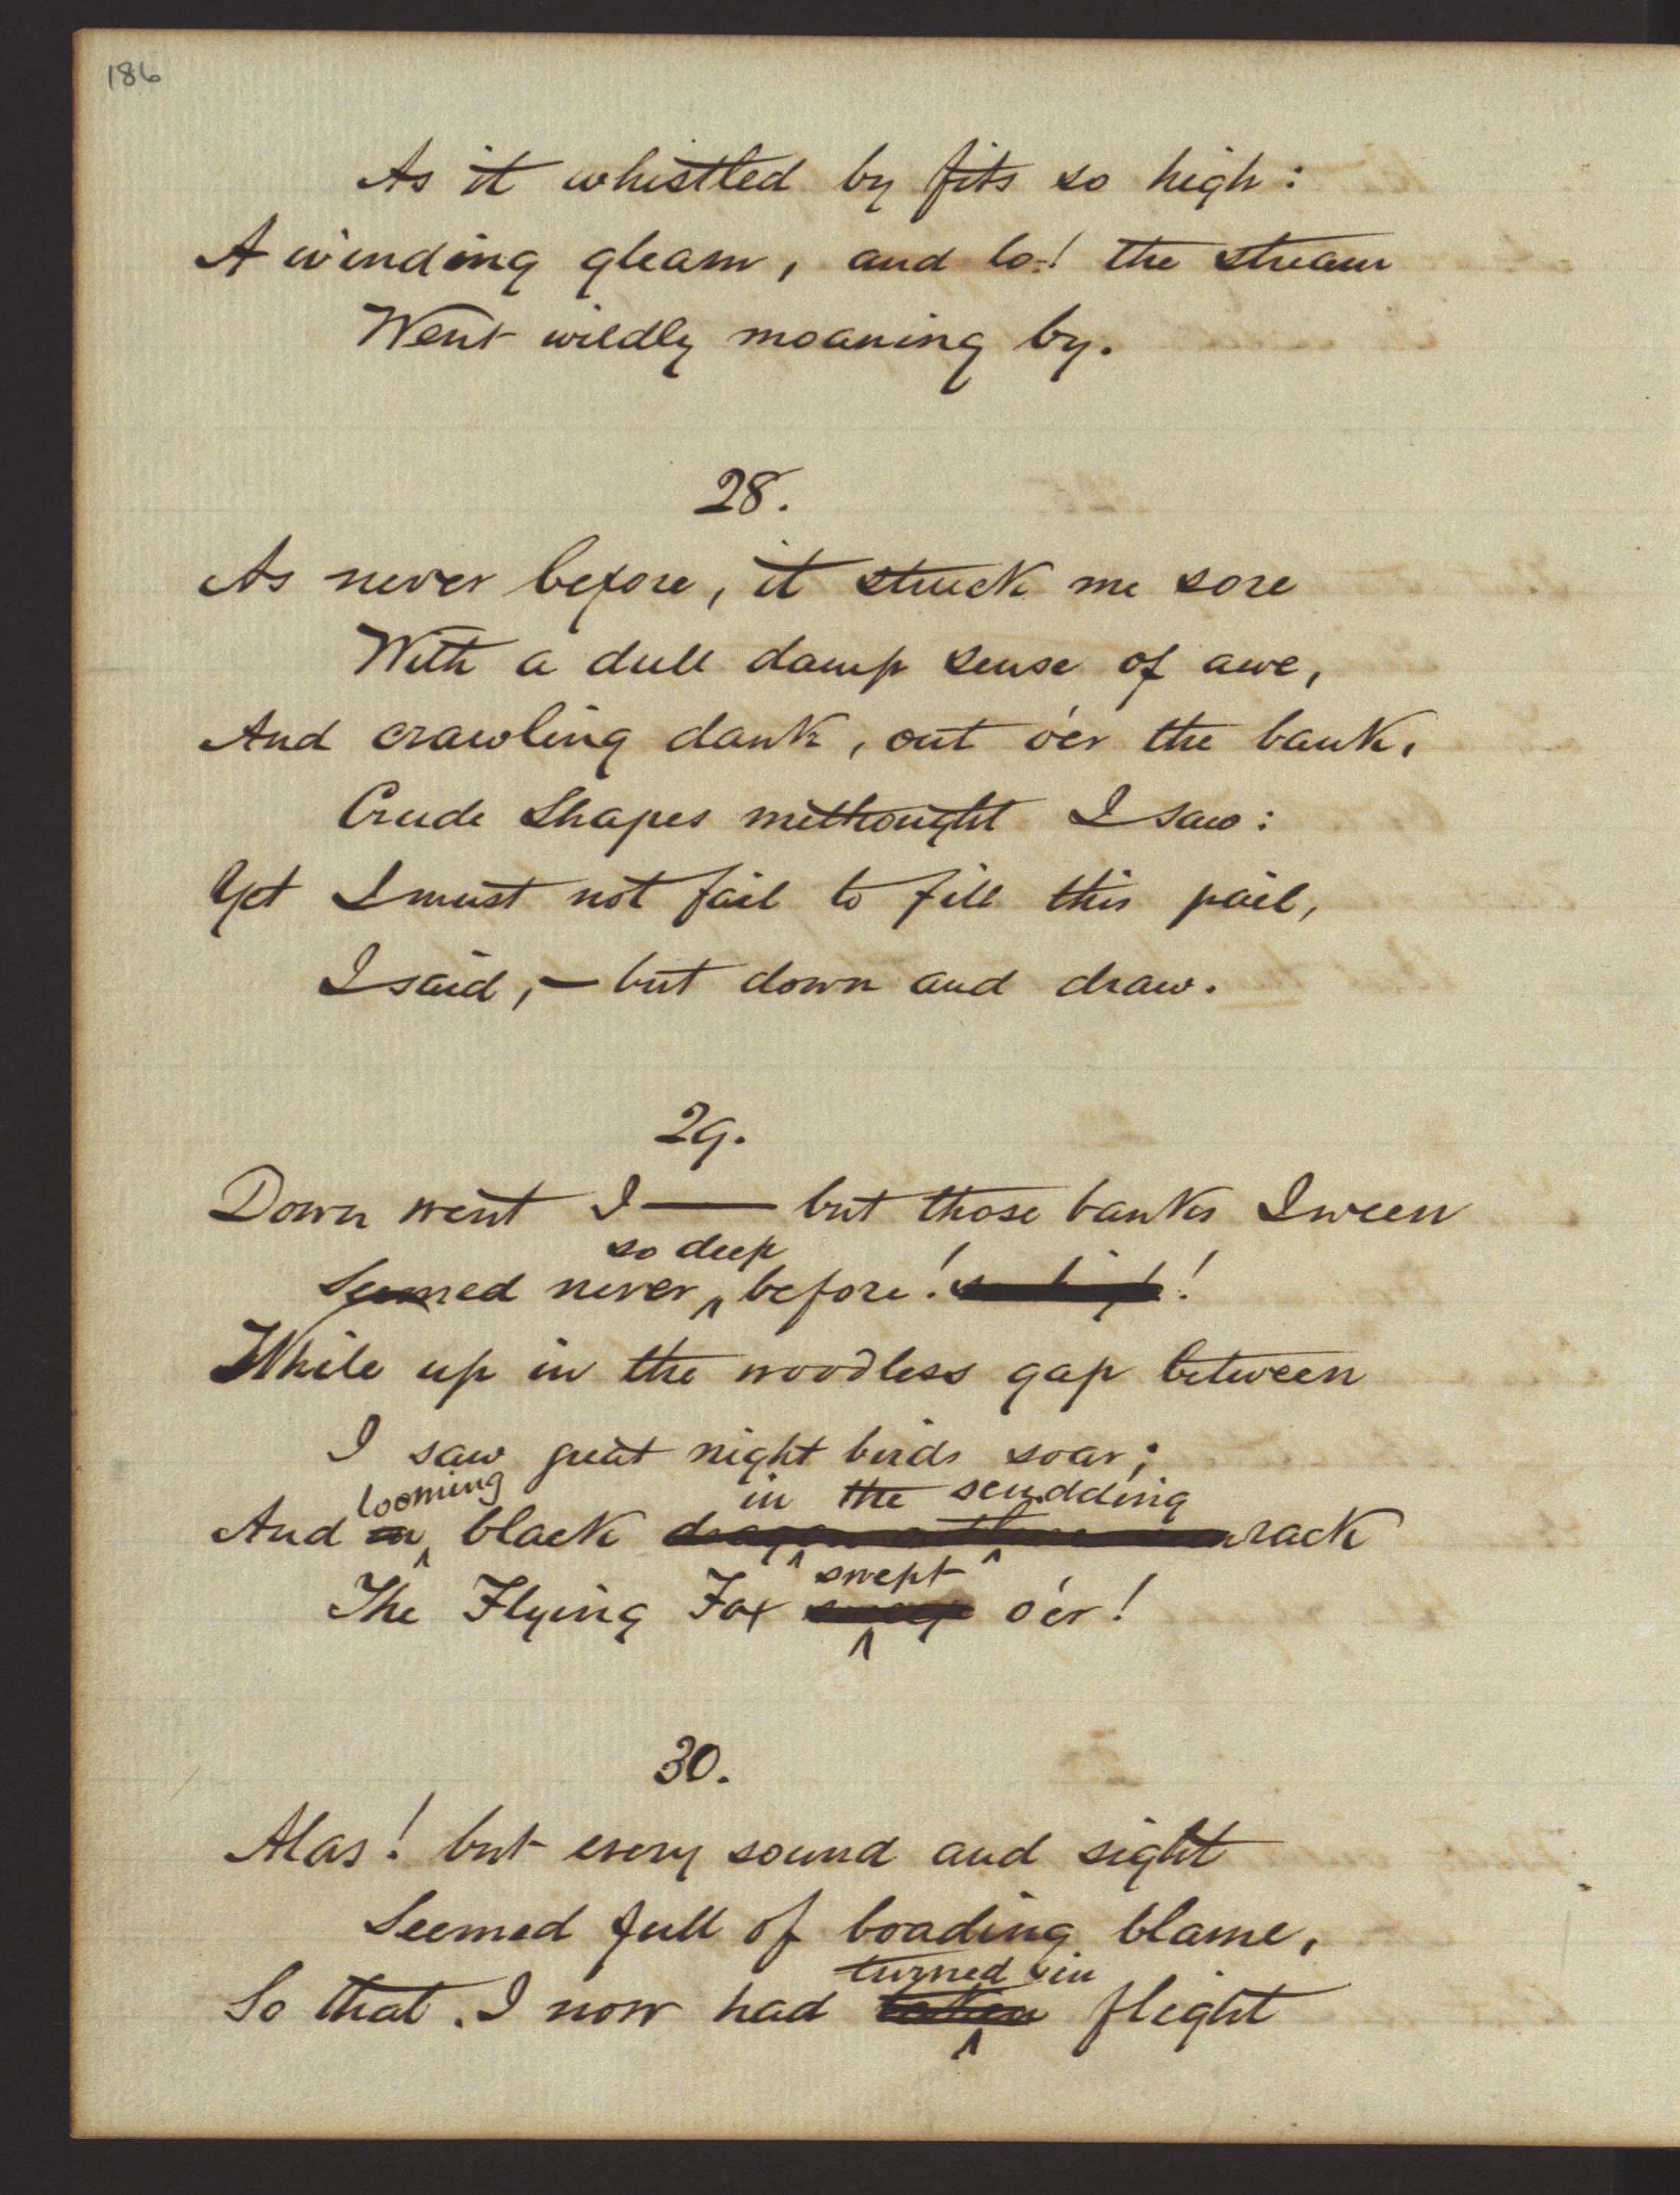 186
As it whistled by fits so high:
A winding gleam, and lo! the stream
Went wildly moaning by.
28.
As never before, it struck me sore
With a dull damp sense of awe,
And crawling dank, out o'er the bank,
Crude Shapes methought I saw:
Yet I must not fail to fill this pail,
I said, — but down and draw.
29.
Down went I — but those banks I ween
so deep
Seemed never before! !
While up in the woodless gap between
I saw great night birds soar;
looming in the scudding
And black rack
swept
The Flying Fox o'er!
30.
Alas! but every sound and sight
Seemed full of boading blame,
turned in
So that I now had taken flight